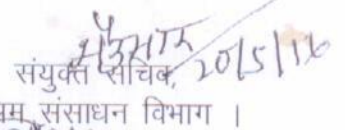 20/5/16
संयुक्त सचिव,
श्रम संसाधन विभाग ।